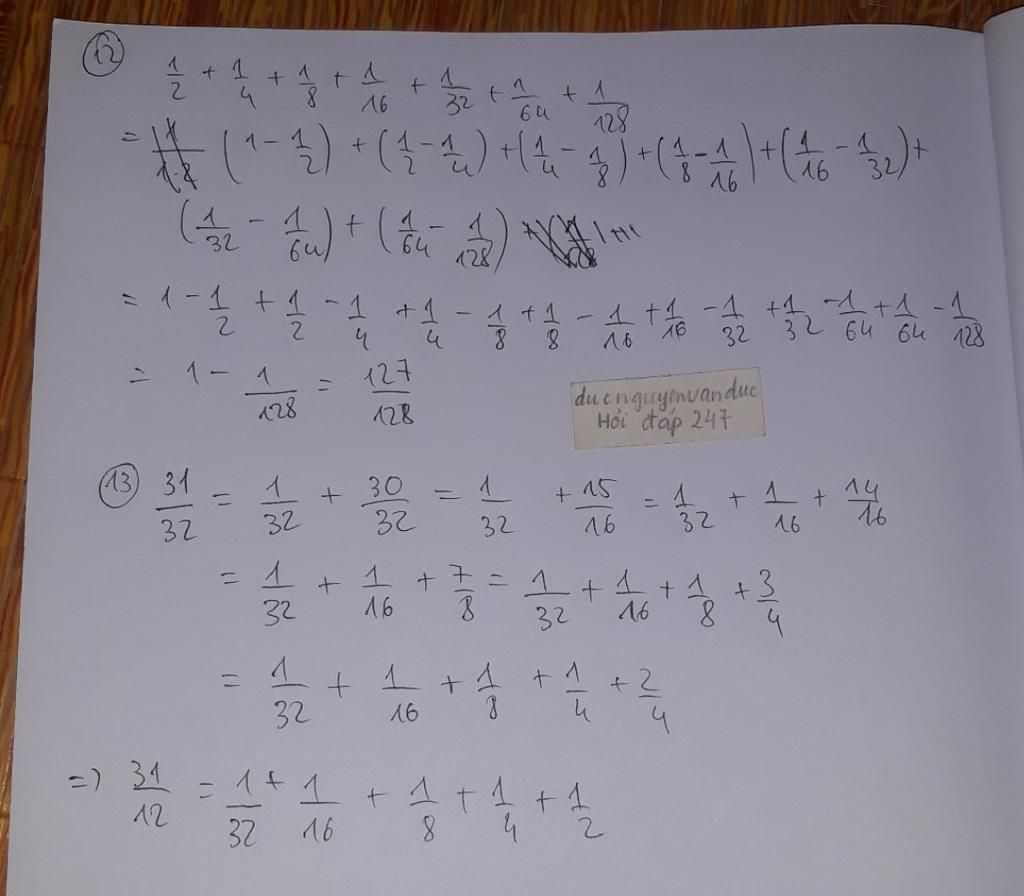 12
1/2 + 1/4 + 1/8 + 1/16 + 1/32 + 1/64 + 1/128
= (1 - 1/2) + (1/2 - 1/4) + (1/4 - 1/8) + (1/8 - 1/16) + (1/16 - 1/32) +
(1/32 - 1/64) + (1/64 - 1/128)
= 1 - 1/2 + 1/2 - 1/4 + 1/4 - 1/8 + 1/8 - 1/16 + 1/16 - 1/32 + 1/32 - 1/64 + 1/64 - 1/128
= 1 - 1/128 = 127/128
ducnguyenvanduc
Hỏi đáp 247
13 31/32 = 1/32 + 30/32 = 1/32 + 15/16 = 1/32 + 1/16 + 14/16
= 1/32 + 1/16 + 7/8 = 1/32 + 1/16 + 1/8 + 3/4
= 1/32 + 1/16 + 1/8 + 1/4 + 2/4
=) 31/12 = 1/32 + 1/16 + 1/8 + 1/4 + 1/2